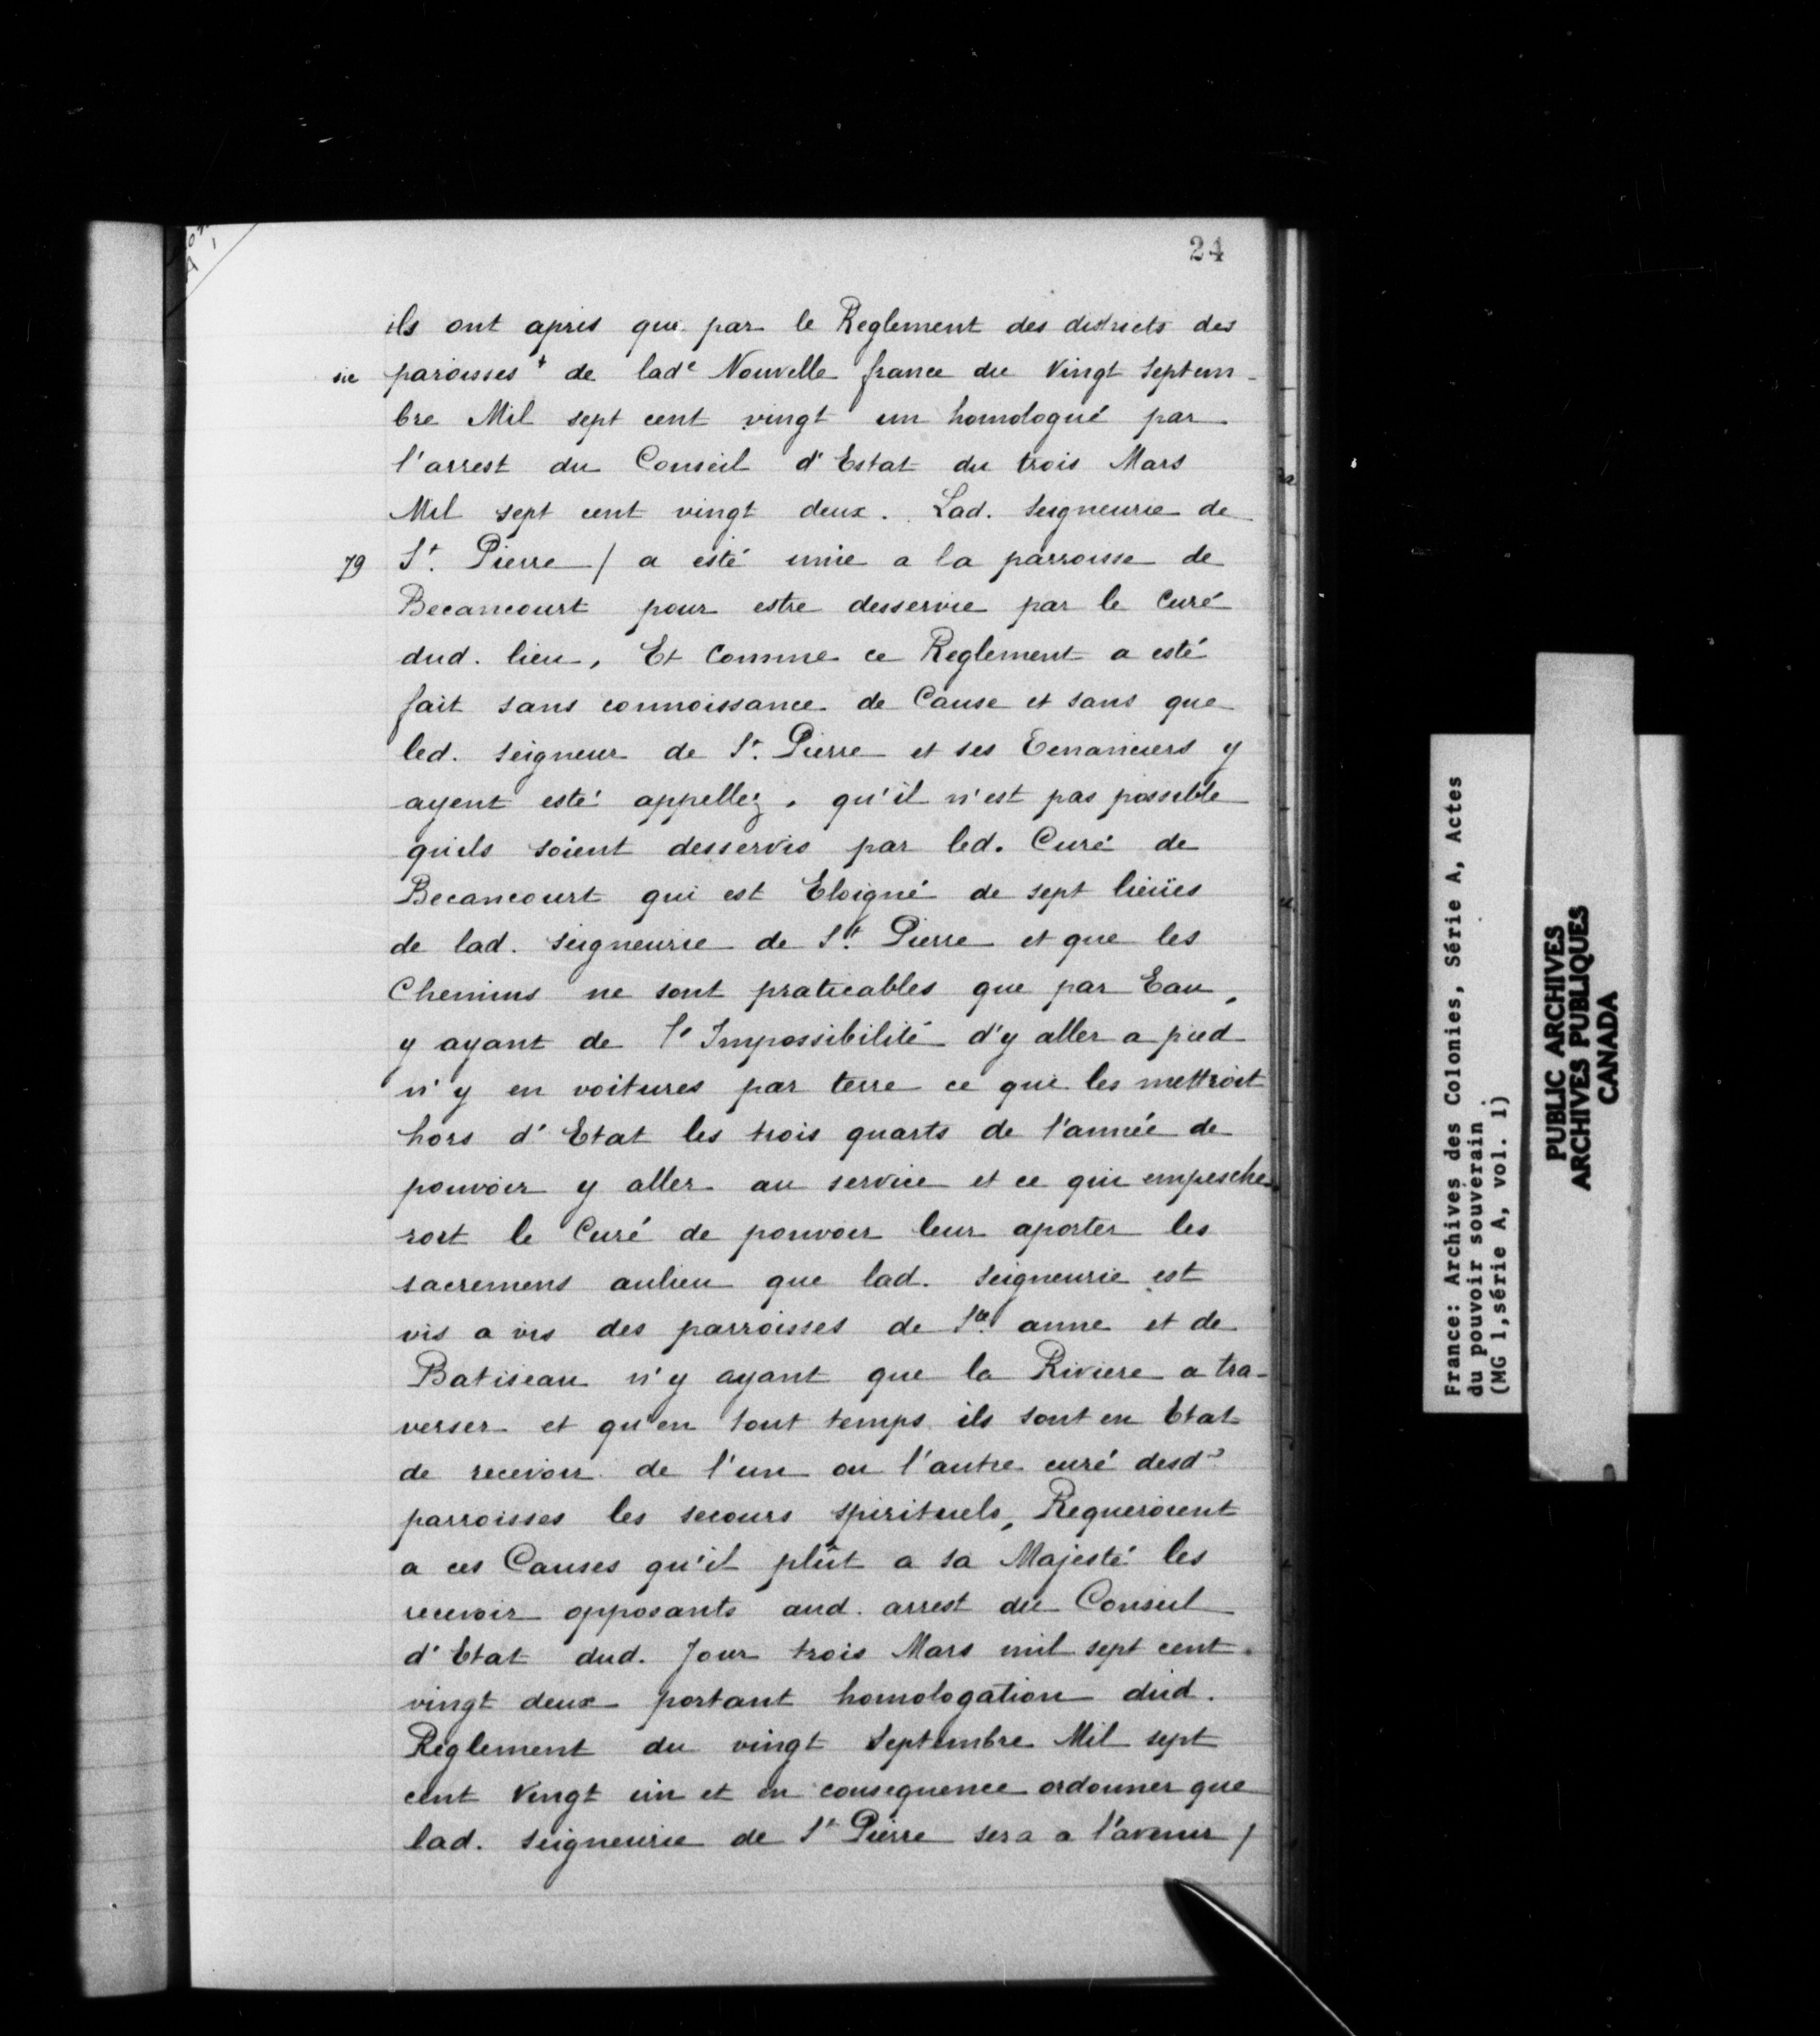 24
ils ont apris que par le Reglement des districts des
sic paroisses + de lade Nouvelle france du Vingt Septem-
bre Mil sept cent vingt un homologué par
l'arrest du Conseil d'Estat du trois Mars
Mil sept cent vingt deux. Lad. Seigneurie de
79 St. Pierre / a esté unie a la parroisse de
Becancourt pour estre desservie par le Curé
dud. lieu, Et Comme ce Reglement a esté
fait sans connoissance de Cause et sans que
led. Seigneur de St. Pierre et ses Tenanciers y
ayent esté appellez, qu'il n'est pas possible
qu'ils soient desservis par led. Curé de
Becancourt qui est Eloigné de sept lieües
de lad. Seigneurie de St. Pierre et que les
Chemins ne sont praticables que par Eau,
y ayant de l'Impossibilité d'y aller a pied
n'y en voitures par terre ce qui les mettroit
hors d'Etat les trois quarts de l'année de
pouvoir y aller au service et ce qui empesche-
roit le Curé de pouvoir leur aporter les
sacremens aulieu que lad. Seigneurie est
vis a vis des parroisses de Ste. anne et de
Batiscan n'y ayant que la Riviere a tra-
verser et qu'en tout temps ils sont en Etat
de recevoir de l'un ou l'autre curé desd.
parroisses les secours spirituels, Requeroient
a ces Causes qu'il plût a sa Majesté les
recevoir opposants aud. arrest du Conseil
d'Etat dud. Jour trois Mars mil sept cent
vingt deux portant homologation dud.
Reglement du vingt Septembre Mil sept
cent Vingt un et en consequence ordonner que
lad. Seigneurie de St Pierre sera a l'avenir /
France: Archives des Colonies, Série A, Actes
du pouvoir souverain.
(MG 1,série A, vol. 1)
PUBLIC ARCHIVES
ARCHIVES PUBLIQUES
CANADA